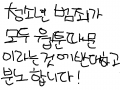 청소년 범죄가
모두 웹툰때문
이라는것에반대하고
분노합니다!